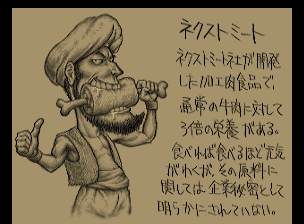 ネクストミート
ネクストミート社が開発
した加工肉食品で、
通常の牛肉に対して
3倍の栄養がある。
食べれば食べるほど元気
がわくが、その原料に
関しては企業秘密として
明らかにされていない。